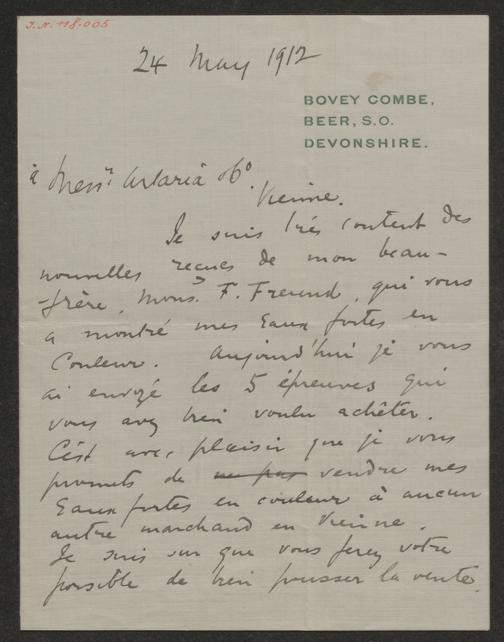 J.N. 118.005
24 May 1912
BOVEY COMBE,
BEER, S.O.
DEVONSHIRE.
à Messrs Artaria & Co.
Vienne.
Je suis très content des
nouvelles reçues de mon beau-
frère, Mons. F. Freund, qui vous
a montré mes Eaux fortes en
Couleur. Aujourd'hui je vous
ai envoyé les 5 épreuves qui
vous avez bien voulu achêter.
C'ést avec plaisir que je vous
promets de ne pas vendre mes
Eaux fortes en couleur à aucun
autre marchand en Vienne.
Je suis sur que vous ferez votre
possible de bien pousser la vente.